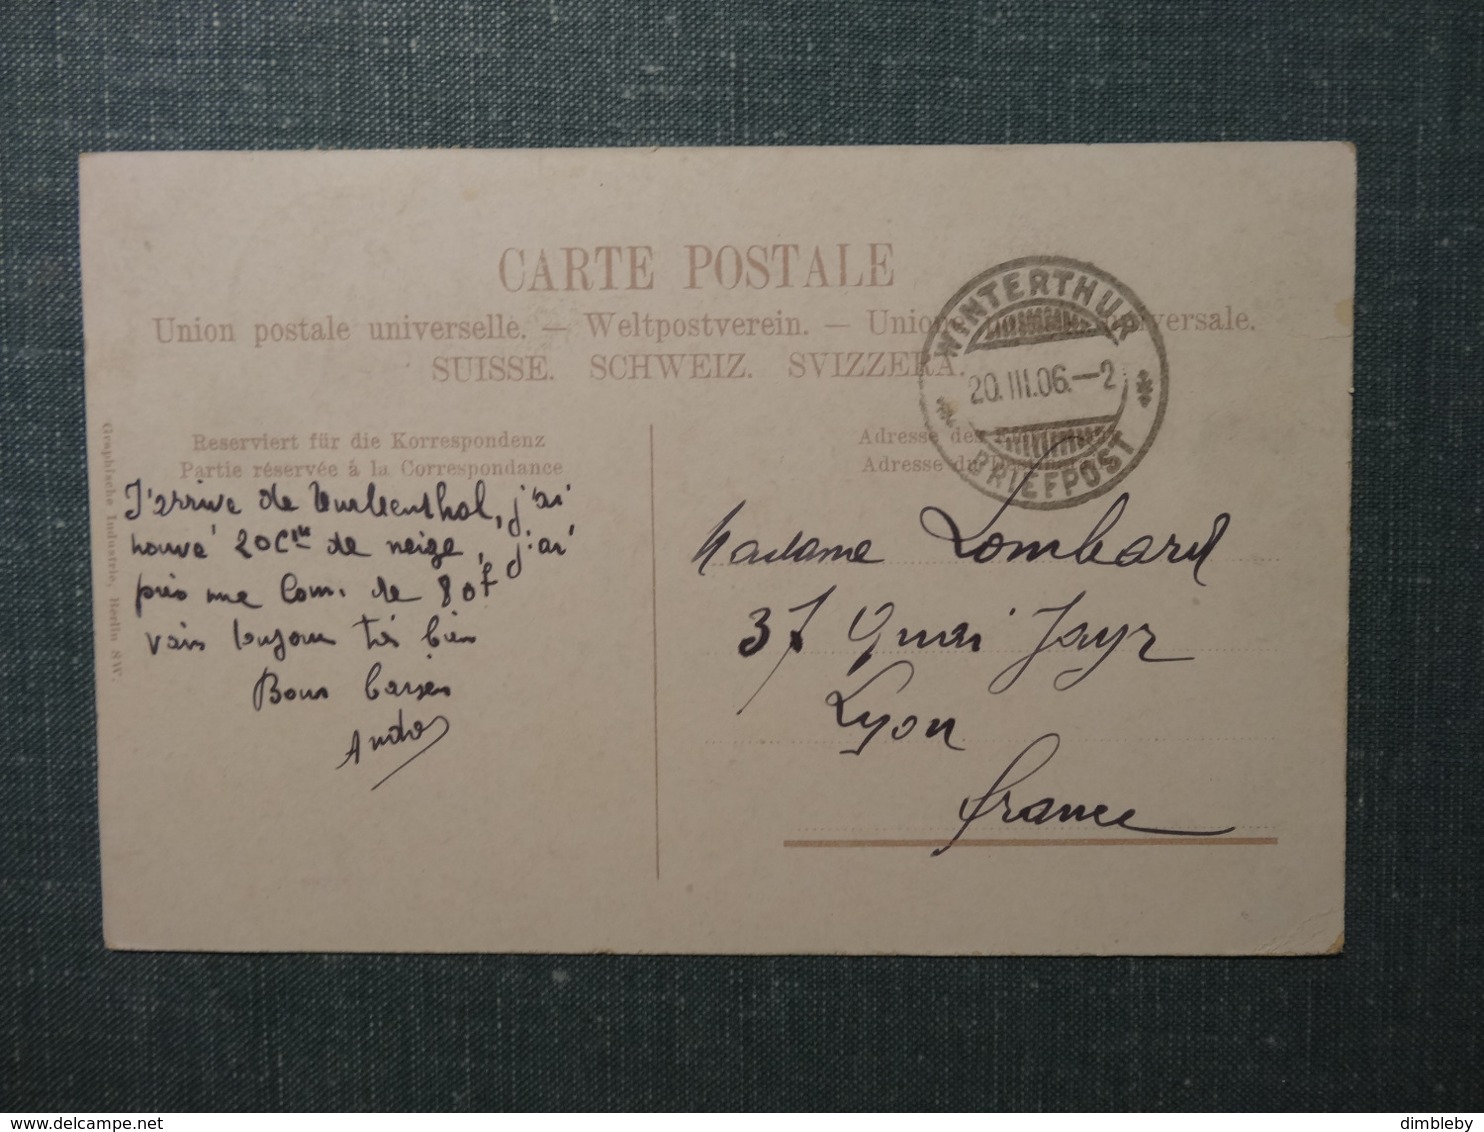 CARTE POSTALE
Union postale universelle. — Weltpostverein. — Union versale.
SUISSE. SCHWEIZ. SVIZZERA.
WINTERTHUR
20.III.06.–2
BRIEFPOST
Reserviert für die Korrespondenz
Partie réservée à la Correspondance
Adresse des
Adresse du
Graphische Industrie, Berlin SW.
J'arrive de j'ai
trouvé 20 Ctm de neige, j'ai
pris une Com. de 80f
vais toujours très bien
Bons baisers
André
Madame Lombard
37 Quai Jayr
Lyon
france
delcampe.net
dimbleby